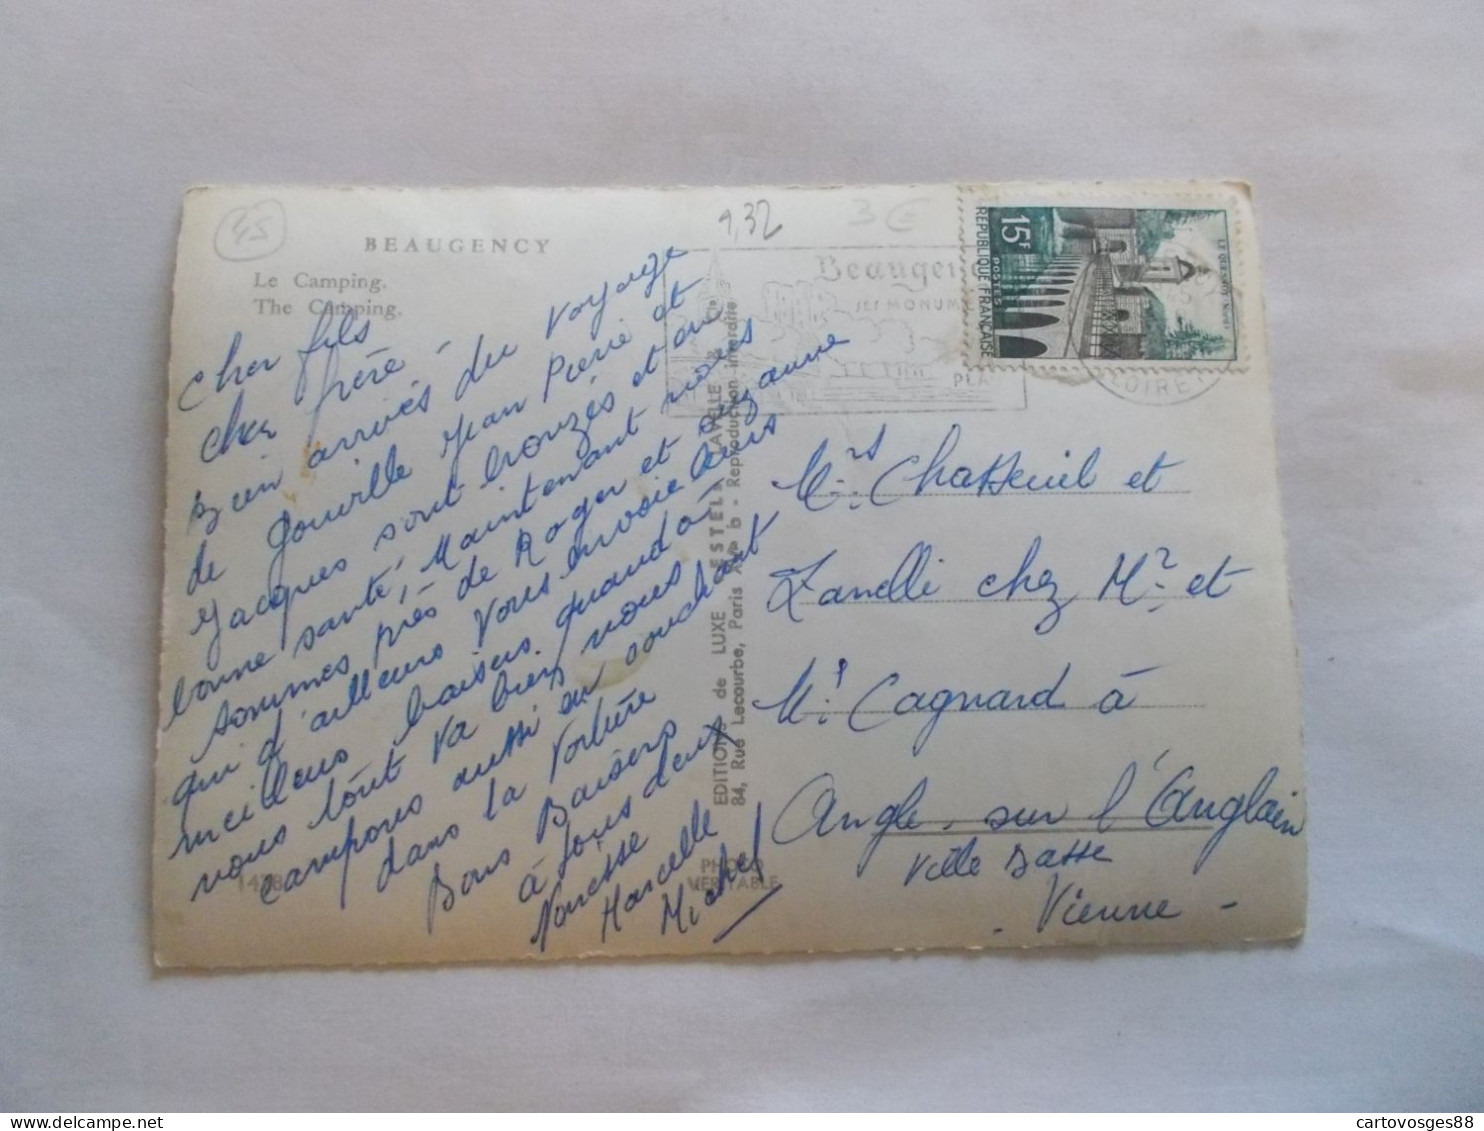 45
9,32
3 €
BEAUGENCY
Le Camping.
The Camping.
Cher fils
cher frère -
Bien arrivés du voyage
de Gouville Jean Pierre et
Jacques sont bronzés et en
bonne santé, Maintenant nous
sommes près de Roger et Suzanne
qui d'ailleurs vous envoie leurs
meilleurs baisers. quand à
nous tout va bien nous
campons aussi en couchant
dans la voiture
Bons Baisers
à tous deux
Marcelle
Michel
PHOTO
VERITABLE
EDITIONS de LUXE ESTEL LAVELLE &
84, Rue Lecourbe, Paris - Reproduction interdite
Beaugency
ses MONUM
PLA
LOIRET
15F
POSTES
REPUBLIQUE FRANÇAISE
LE QUESNOY (Nord)
Mrs Chasseuil et
Zanelli chez Mr et
Me Cagnard à
Angle, sur l'Anglain
Ville Basse
- Vienne -
cartovosges88